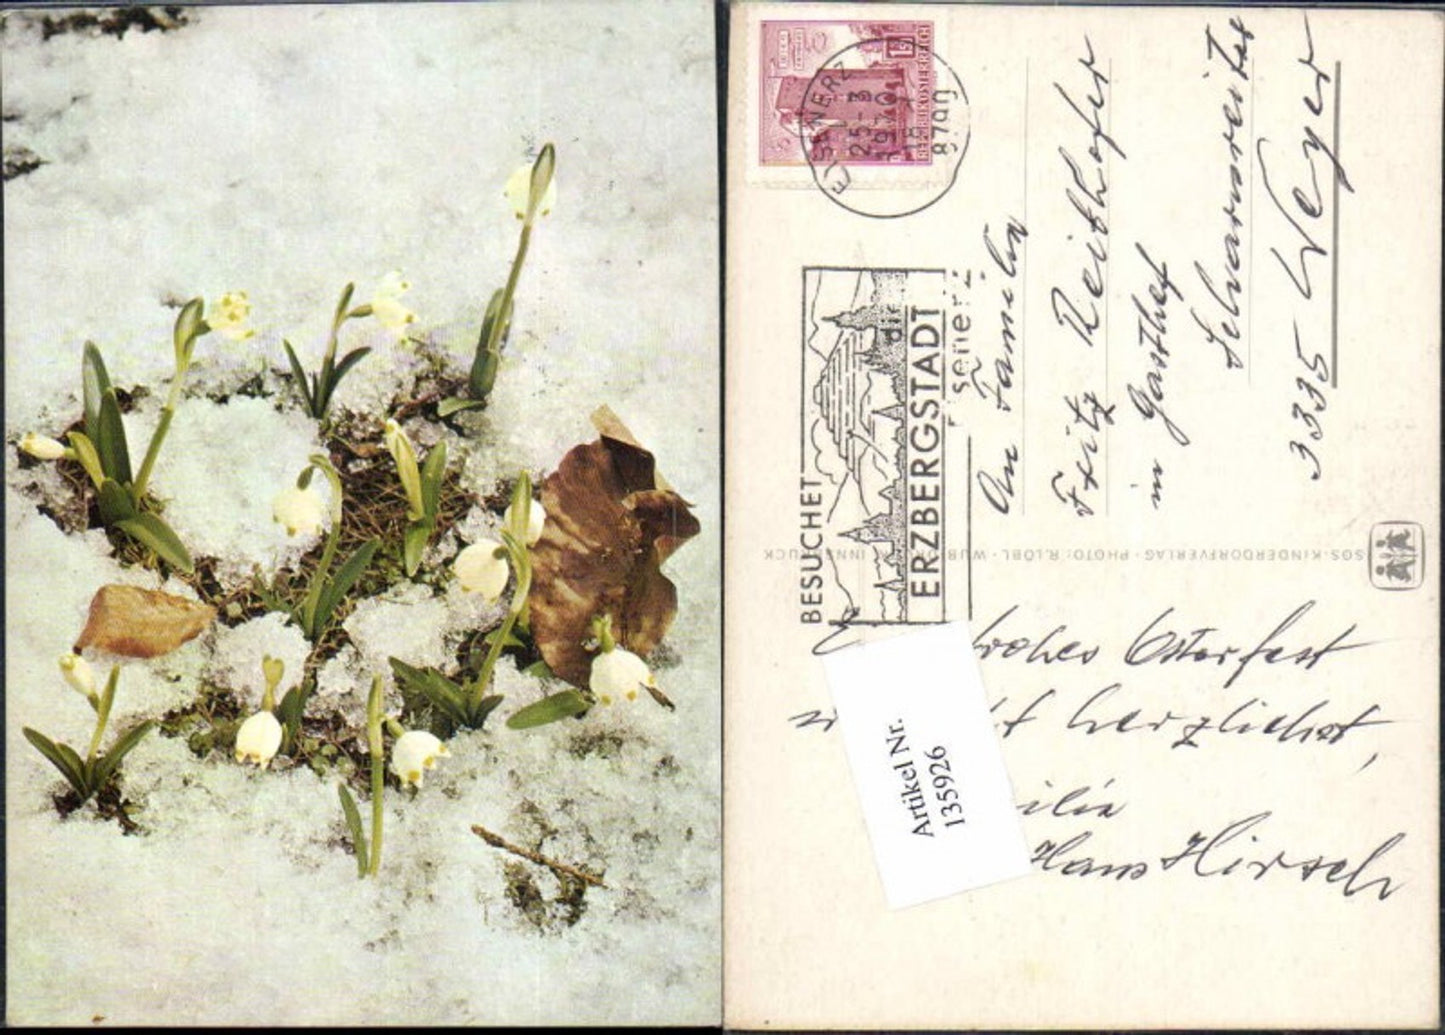 1S
REPUBLIK ÖSTERREICH
EISENERZ
25-3
1970
18
8790
BESUCHET
die
ERZBERGSTADT
Eisenerz
An Familie
Fritz Reithofer
in Gasthof
3335 Weyer
SOS-KINDERDORFVERLAG · PHOTO: R. LÖBL · INNSBRUCK
frohes Osterfest
herzlichst,
Hans Hirsch
Artikel Nr.
135926